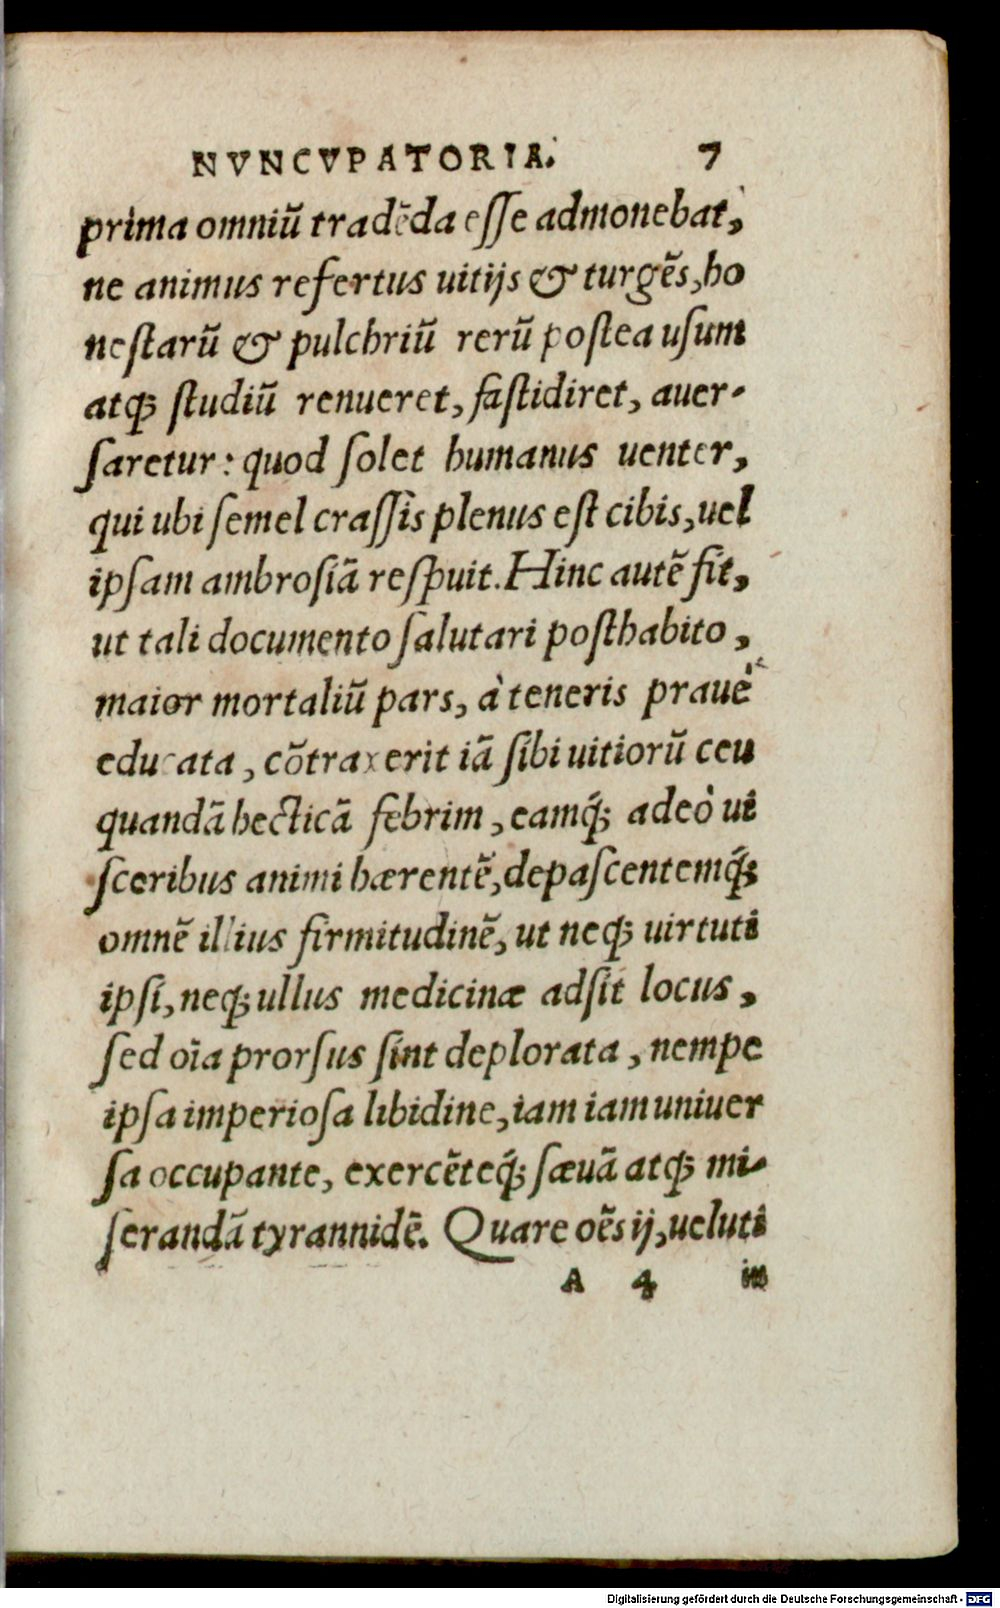 NVNCVPATORIA. 7
prima omniũ tradẽda eſſe admonebat,
ne animus refertus uitijs & turgẽs, ho
neſtarũ & pulchriũ rerũ poſtea uſum
atq́; ſtudiũ renueret, faſtidiret, auer-
ſaretur: quod ſolet humanus uenter,
qui ubi ſemel craſſis plenus eſt cibis, uel
ipſam ambroſiã reſpuit. Hinc autẽ fit,
ut tali documento ſalutari poſthabito,
maior mortaliũ pars, à teneris prauè
educata, cõtraxerit iã ſibi uitiorũ ceu
quandã hecticã febrim, eamq́; adeò ui
ſceribus animi hærentẽ, depaſcentemq́;
omnẽ illius firmitudinẽ, ut neq; uirtuti
ipſi, neq; ullus medicinæ adſit locus,
ſed oĩa prorſus ſint deplorata, nempe
ipſa imperioſa libidine, iam iam uniuer
ſa occupante, exercẽteq́; ſæuã atq; mi-
ſerandã tyrannidẽ. Quare oẽs ij, ueluti
A 4 in
Digitalisierung gefördert durch die Deutsche Forschungsgemeinschaft - DFG